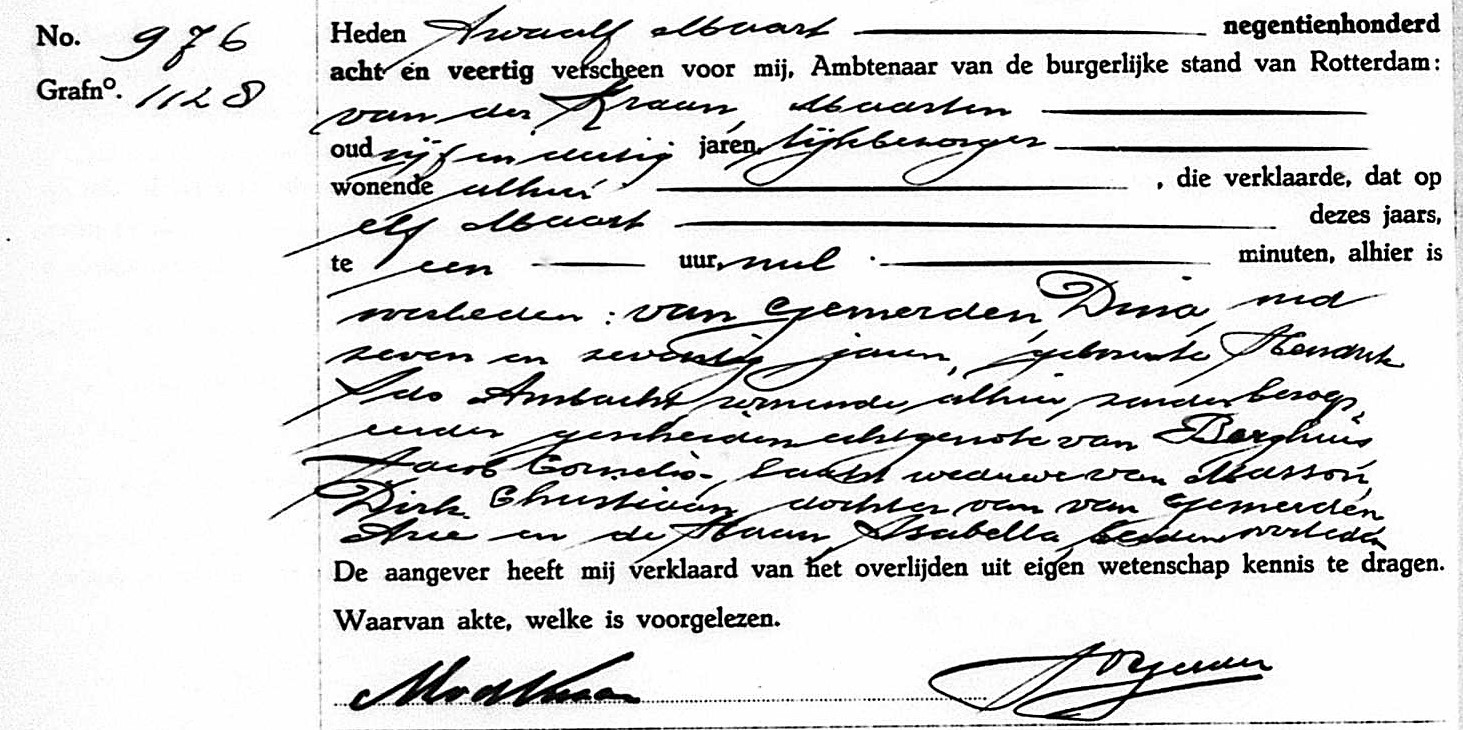 No. 976
Grafno. 1128
Heden Twaalf Maart negentienhonderd
acht en veertig verscheen voor mij, Ambtenaar van de burgerlijke stand van Rotterdam:
van der Kraan, Maarten
oud vijf en dertig jaren, lijkbezorger
wonende alhier, die verklaarde, dat op
elf Maart dezes jaars,
te een uur, nul minuten, alhier is
overleden: van Gemerden, Dina, oud
zeven en zeventig jaren, geboorte Hendrik
Ido Ambacht, wonende alhier, zonder beroep,
eerder gescheiden echtgenote van Borghuis
Jacob Cornelis, laatst weduwe van Masson,
Dirk Christiaan, dochter van van Gemerden
Arie en de Haan, Isabella, beiden overleden
De aangever heeft mij verklaard van het overlijden uit eigen wetenschap kennis te dragen.
Waarvan akte, welke is voorgelezen.
MvdKraan